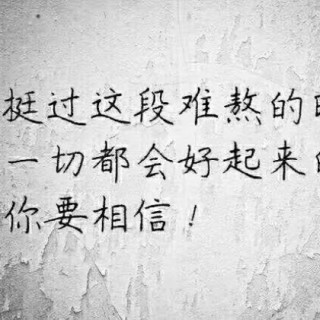 挺过这段难熬的
一切都会好起来
你要相信！